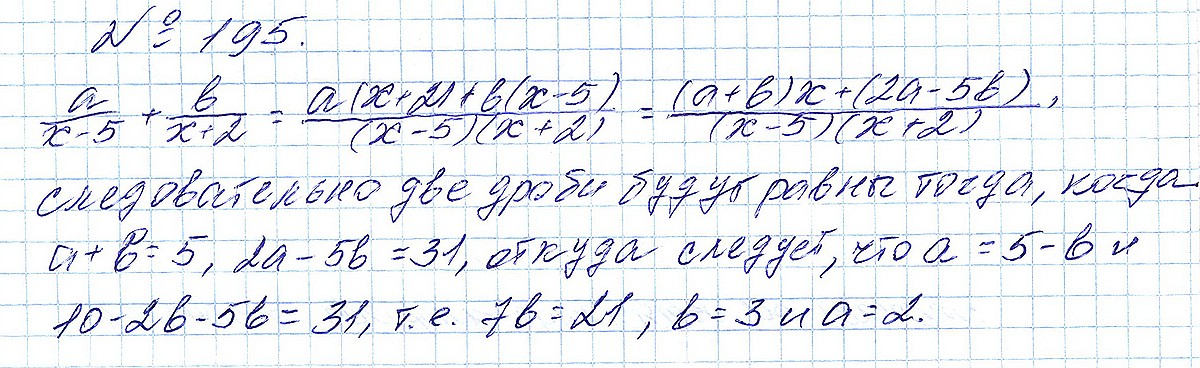 № 195.
a/(x-5) + b/(x+2) = (a(x+2)+b(x-5))/((x-5)(x+2)) = ((a+b)x+(2a-5b))/((x-5)(x+2)),
следовательно две дроби будут равны тогда, когда
a+b=5, 2a-5b=31, откуда следует, что a=5-b и
10-2b-5b=31, т.е. 7b=21, b=3 и a=2.